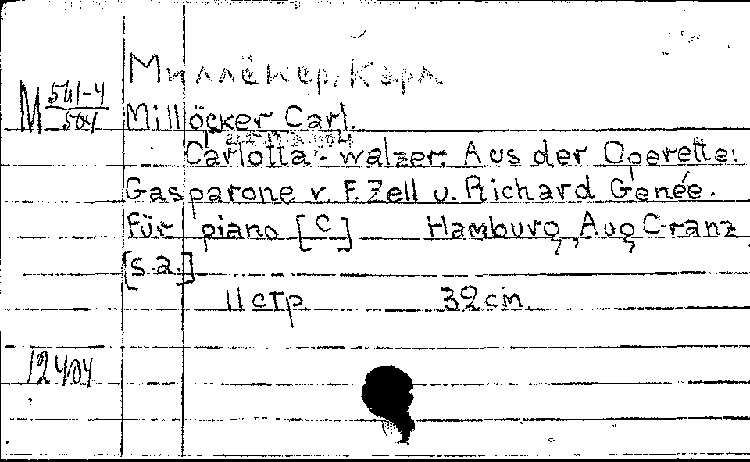 Миллёкер, Карл
М 561-4
Millöcker Carl.
Carlotta - walzer. Aus der Operette:
Gasparone v. F. Zell u. Richard Genée.
Für piano [C] Hamburg, Aug Cranz
[s.a.]
11 стр 32 cm.